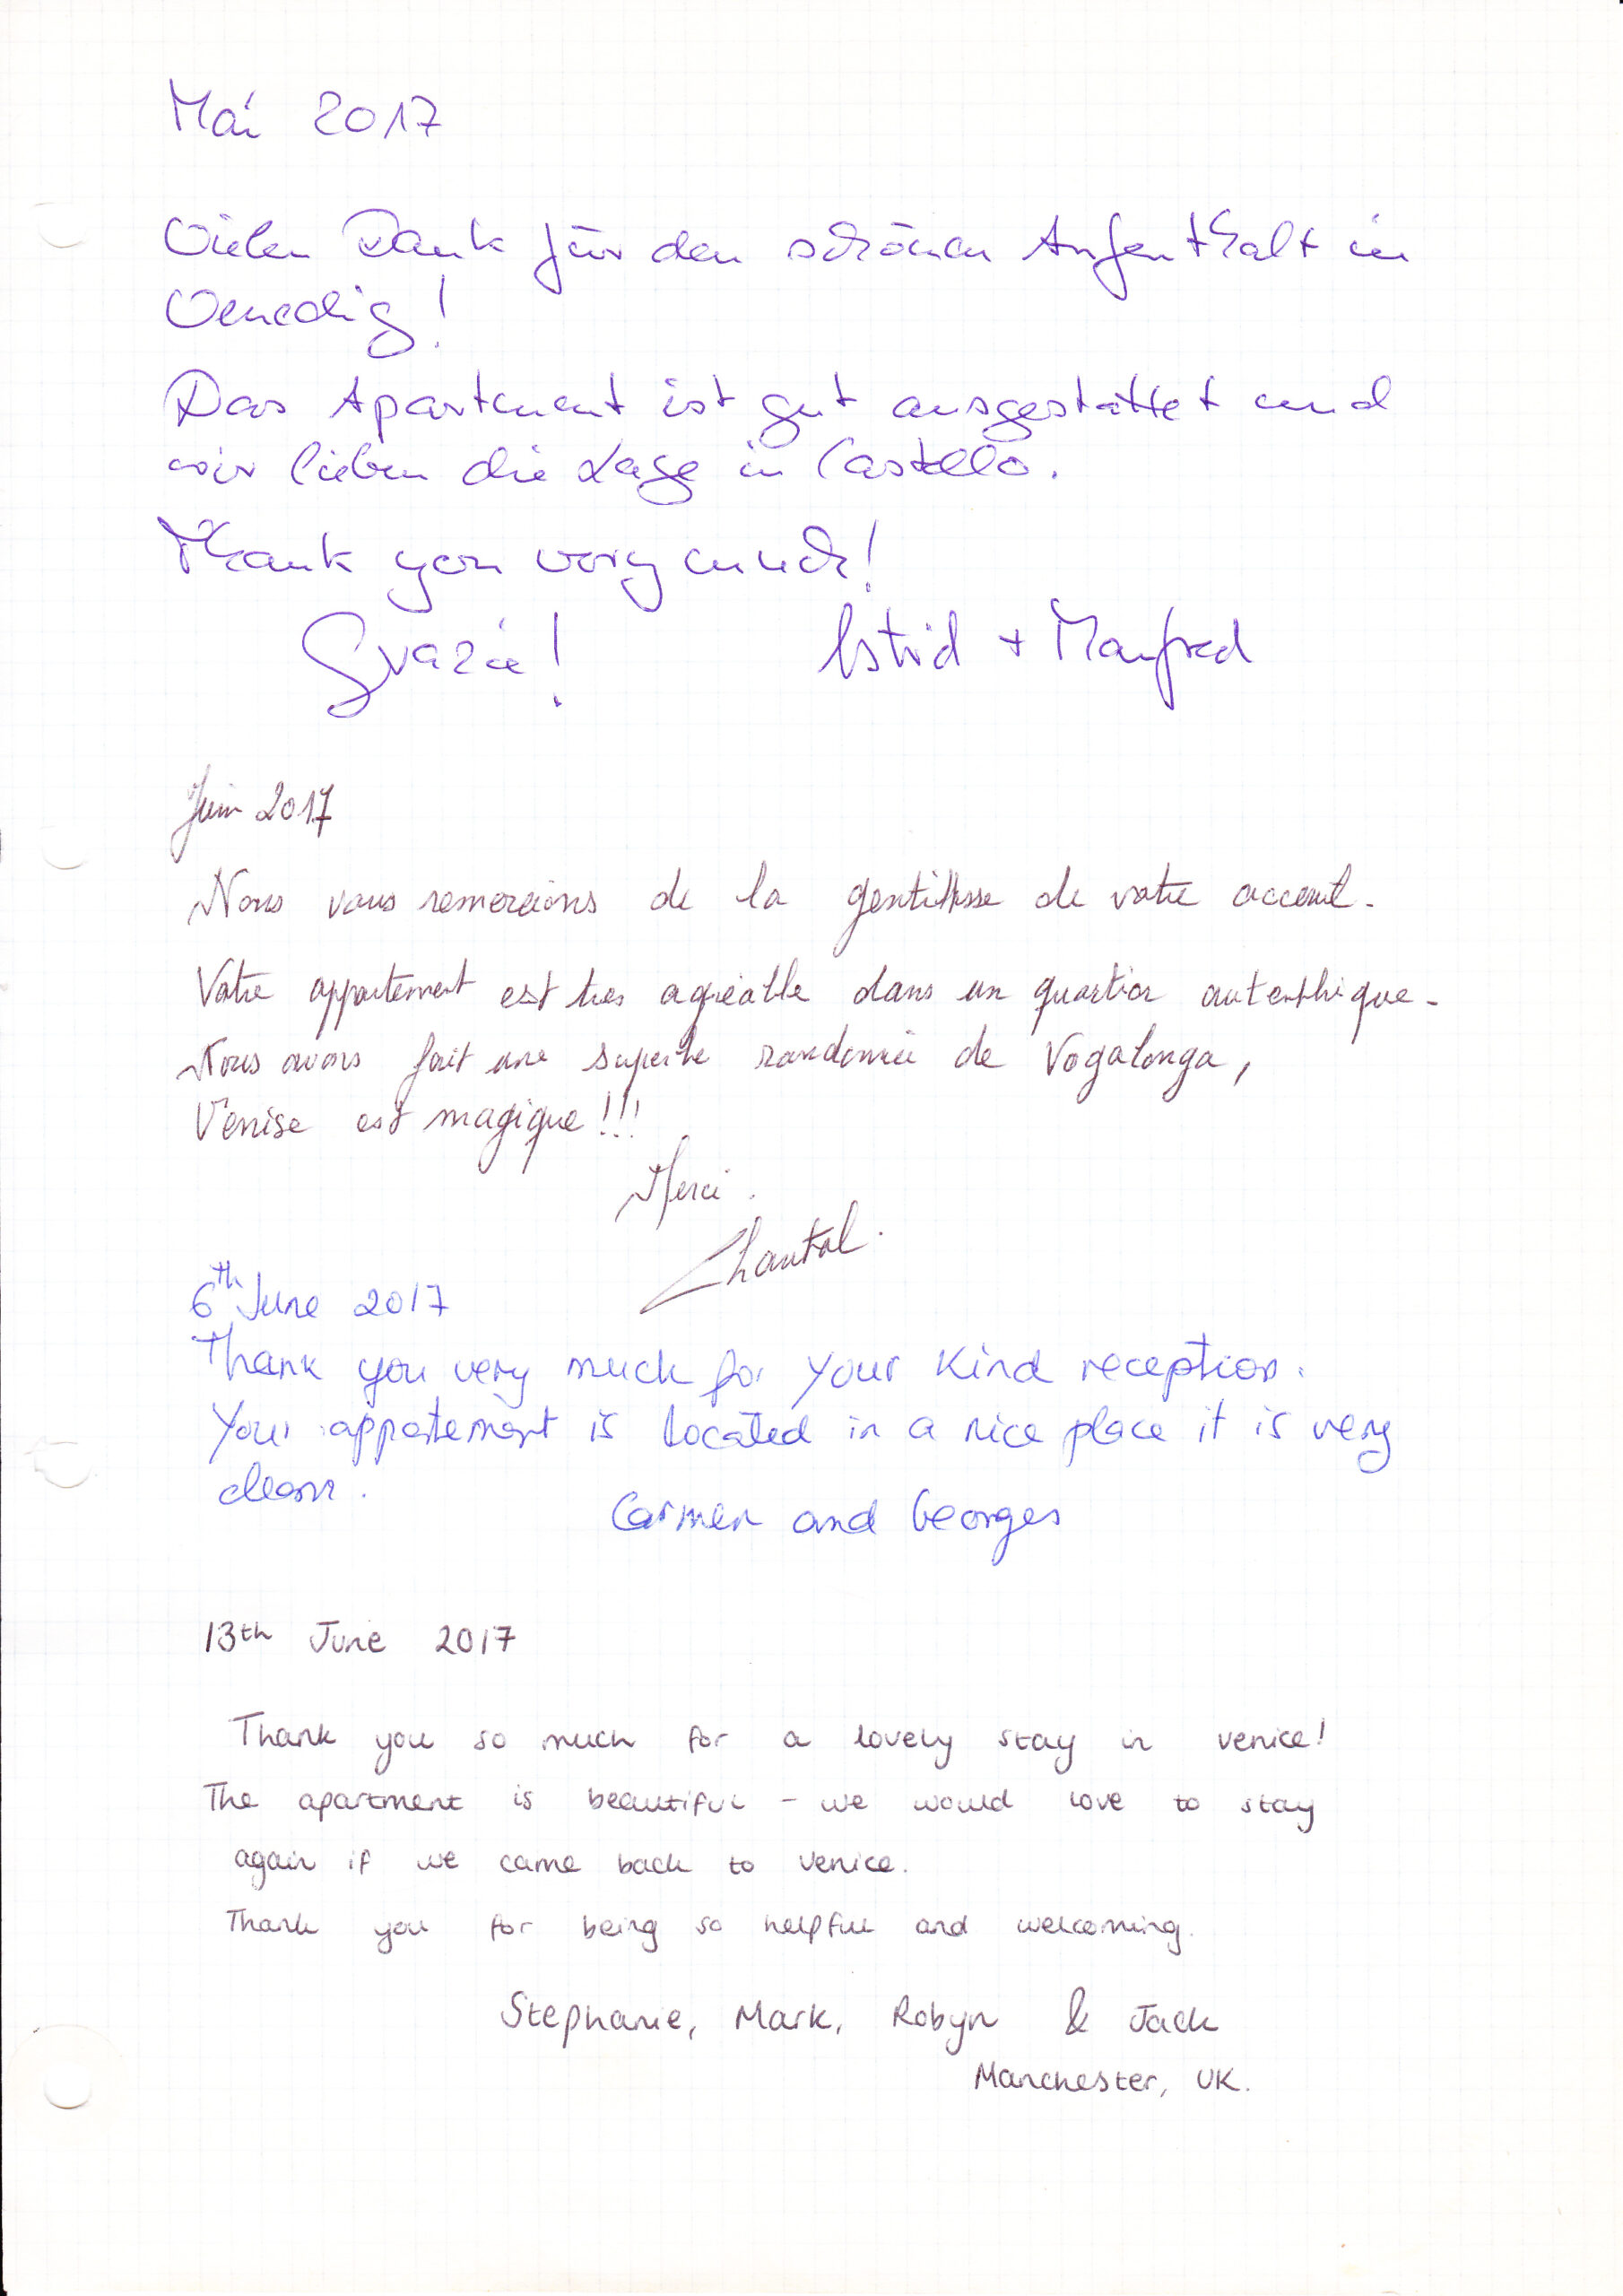 Mai 2017
Vielen Dank für den schönen Aufenthalt in
Venedig!
Das Apartment ist gut ausgestattet und
wir lieben die Lage in Castello.
Thank you very much!
Grazie! Astrid + Manfred
Juin 2017
Nous vous remercions de la gentillesse de votre acceuil.
Votre appartement est très agréable dans un quartier autenthique.
Nous avons fait une superbe randonnée de Vogalonga,
Venise est magique!!!
Merci.
Chantal.
6th June 2017
Thank you very much for your kind reception.
Your appartement is located in a nice place it is very
clean.
Carmen and Georges
13th June 2017
Thank you so much for a lovely stay in Venice!
The apartment is beautiful - we would love to stay
again if we came back to Venice.
Thank you for being so helpful and welcoming.
Stephanie, Mark, Robyn & Jack
Manchester, UK.